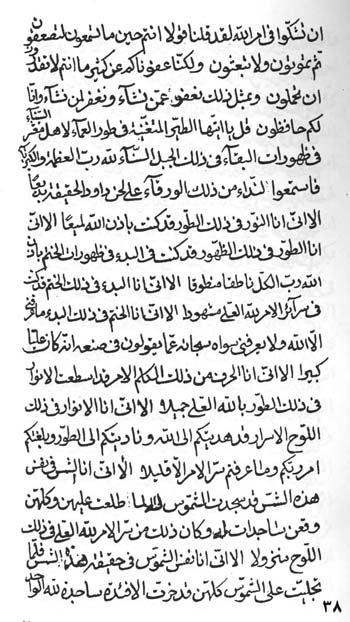 ان تشكوا فى امر الله لقد قلنا قولا انتم حين ما تسمعون لتصعقون
ثم تموتون ولا تبعثون ولكنا عفوناكم عن كثير ما انتم لا تقدرون
ان تحملون و بمثل ذلك نعفو عمن نشآء و نغفر لمن نشآء وانا
لكم حافظون قل يا ايتها الطير المتغنية فى طور العمآء لاهل السنآء مغر
فى ظهورات البقآء فى ذلك الجبل السنآء لله رب العظمة والكبريآء
فاستمعوا لندآء من ذلك الورقآء على لحن داود الحقيقة بديعا
الا انى انا النور فى ذلك الطور قد كنت باذن الله لميعا الا انى
انا الطور فى ذلك الظهور قد كنت فى البدء فى ظهورات الختم باذن
الله رب الكل ناطقا منطوقا الا انى انا البدء فى ذلك الختم قد كنت
فى سرآئر الامر لله العلى مشهودا الا انى انا الختم فى ذلك البدء ما عرفنى
الا الله ولا يعرفنى سواه سبحانه عما يقولون فى صنعه انه كان عليا
كبيرا الا انى انا الحرف من ذلك المكلم الامر قد اسطعت الانوار
فى ذلك الطور بالله العلى جميلا الا انى انا الانوار فى ذلك
اللوح الاسرار قد هديتكم الى الله و ناديتكم الى الطور و بلغتكم
امر ربكم وما عرفتم سر الامر الا قليلا الا انى انا الشمس فى نفس
هذه الشمس قد سجدت الشموس لله لما طلعت عليهن و كلهن
وقعن ساجدات لله و كان ذلك من سر الامر لله العلى فى ذلك
اللوح منزولا الا انى انا نفس الشموس فى حقيقة هذه الشمس فلما
تجليت على الشموس كلهن قد خرت الافئدة ساجدة لله الواحد
٣٨